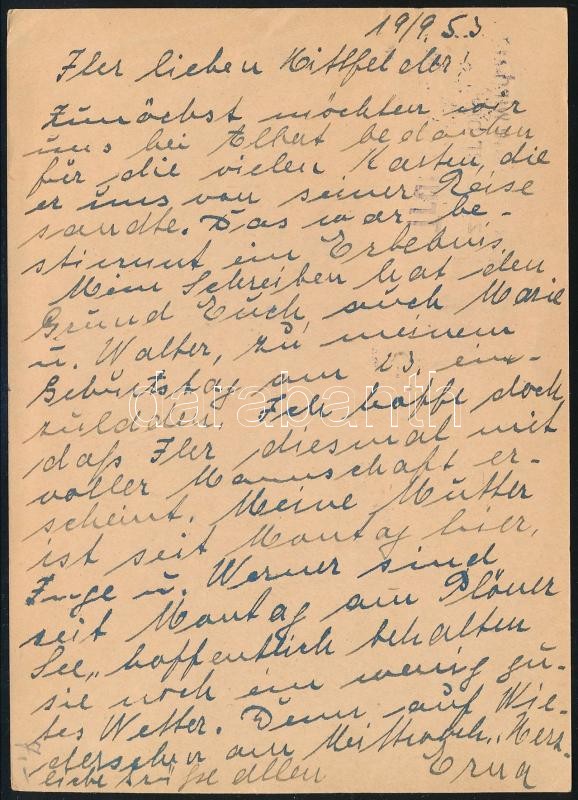 19/9. 53
Ihr lieben Kittfelder!
Zunächst möchten wir
uns bei Albat bedanken
für die vielen Karten, die
er uns von seiner Reise
sandte. Das war be-
stimmt ein Erlebnis.
Mein Schreiben hat den
Grund Euch, auch Marie
u. Walter, zu meinem
Geburtstag am 23. ein-
zuladen. Ich hoffe doch,
daß Ihr diesmal mit
voller Mannschaft er-
scheint. Meine Mutter
ist seit Montag hier.
Inge u. Werner sind
seit Montag am Plöner
See, hoffentlich behalten
sie noch ein wenig gu-
tes Wetter. Denn auf Wie-
dersehen am Mittwoch. Herz-
liche Grüße allen Erna
darabanth